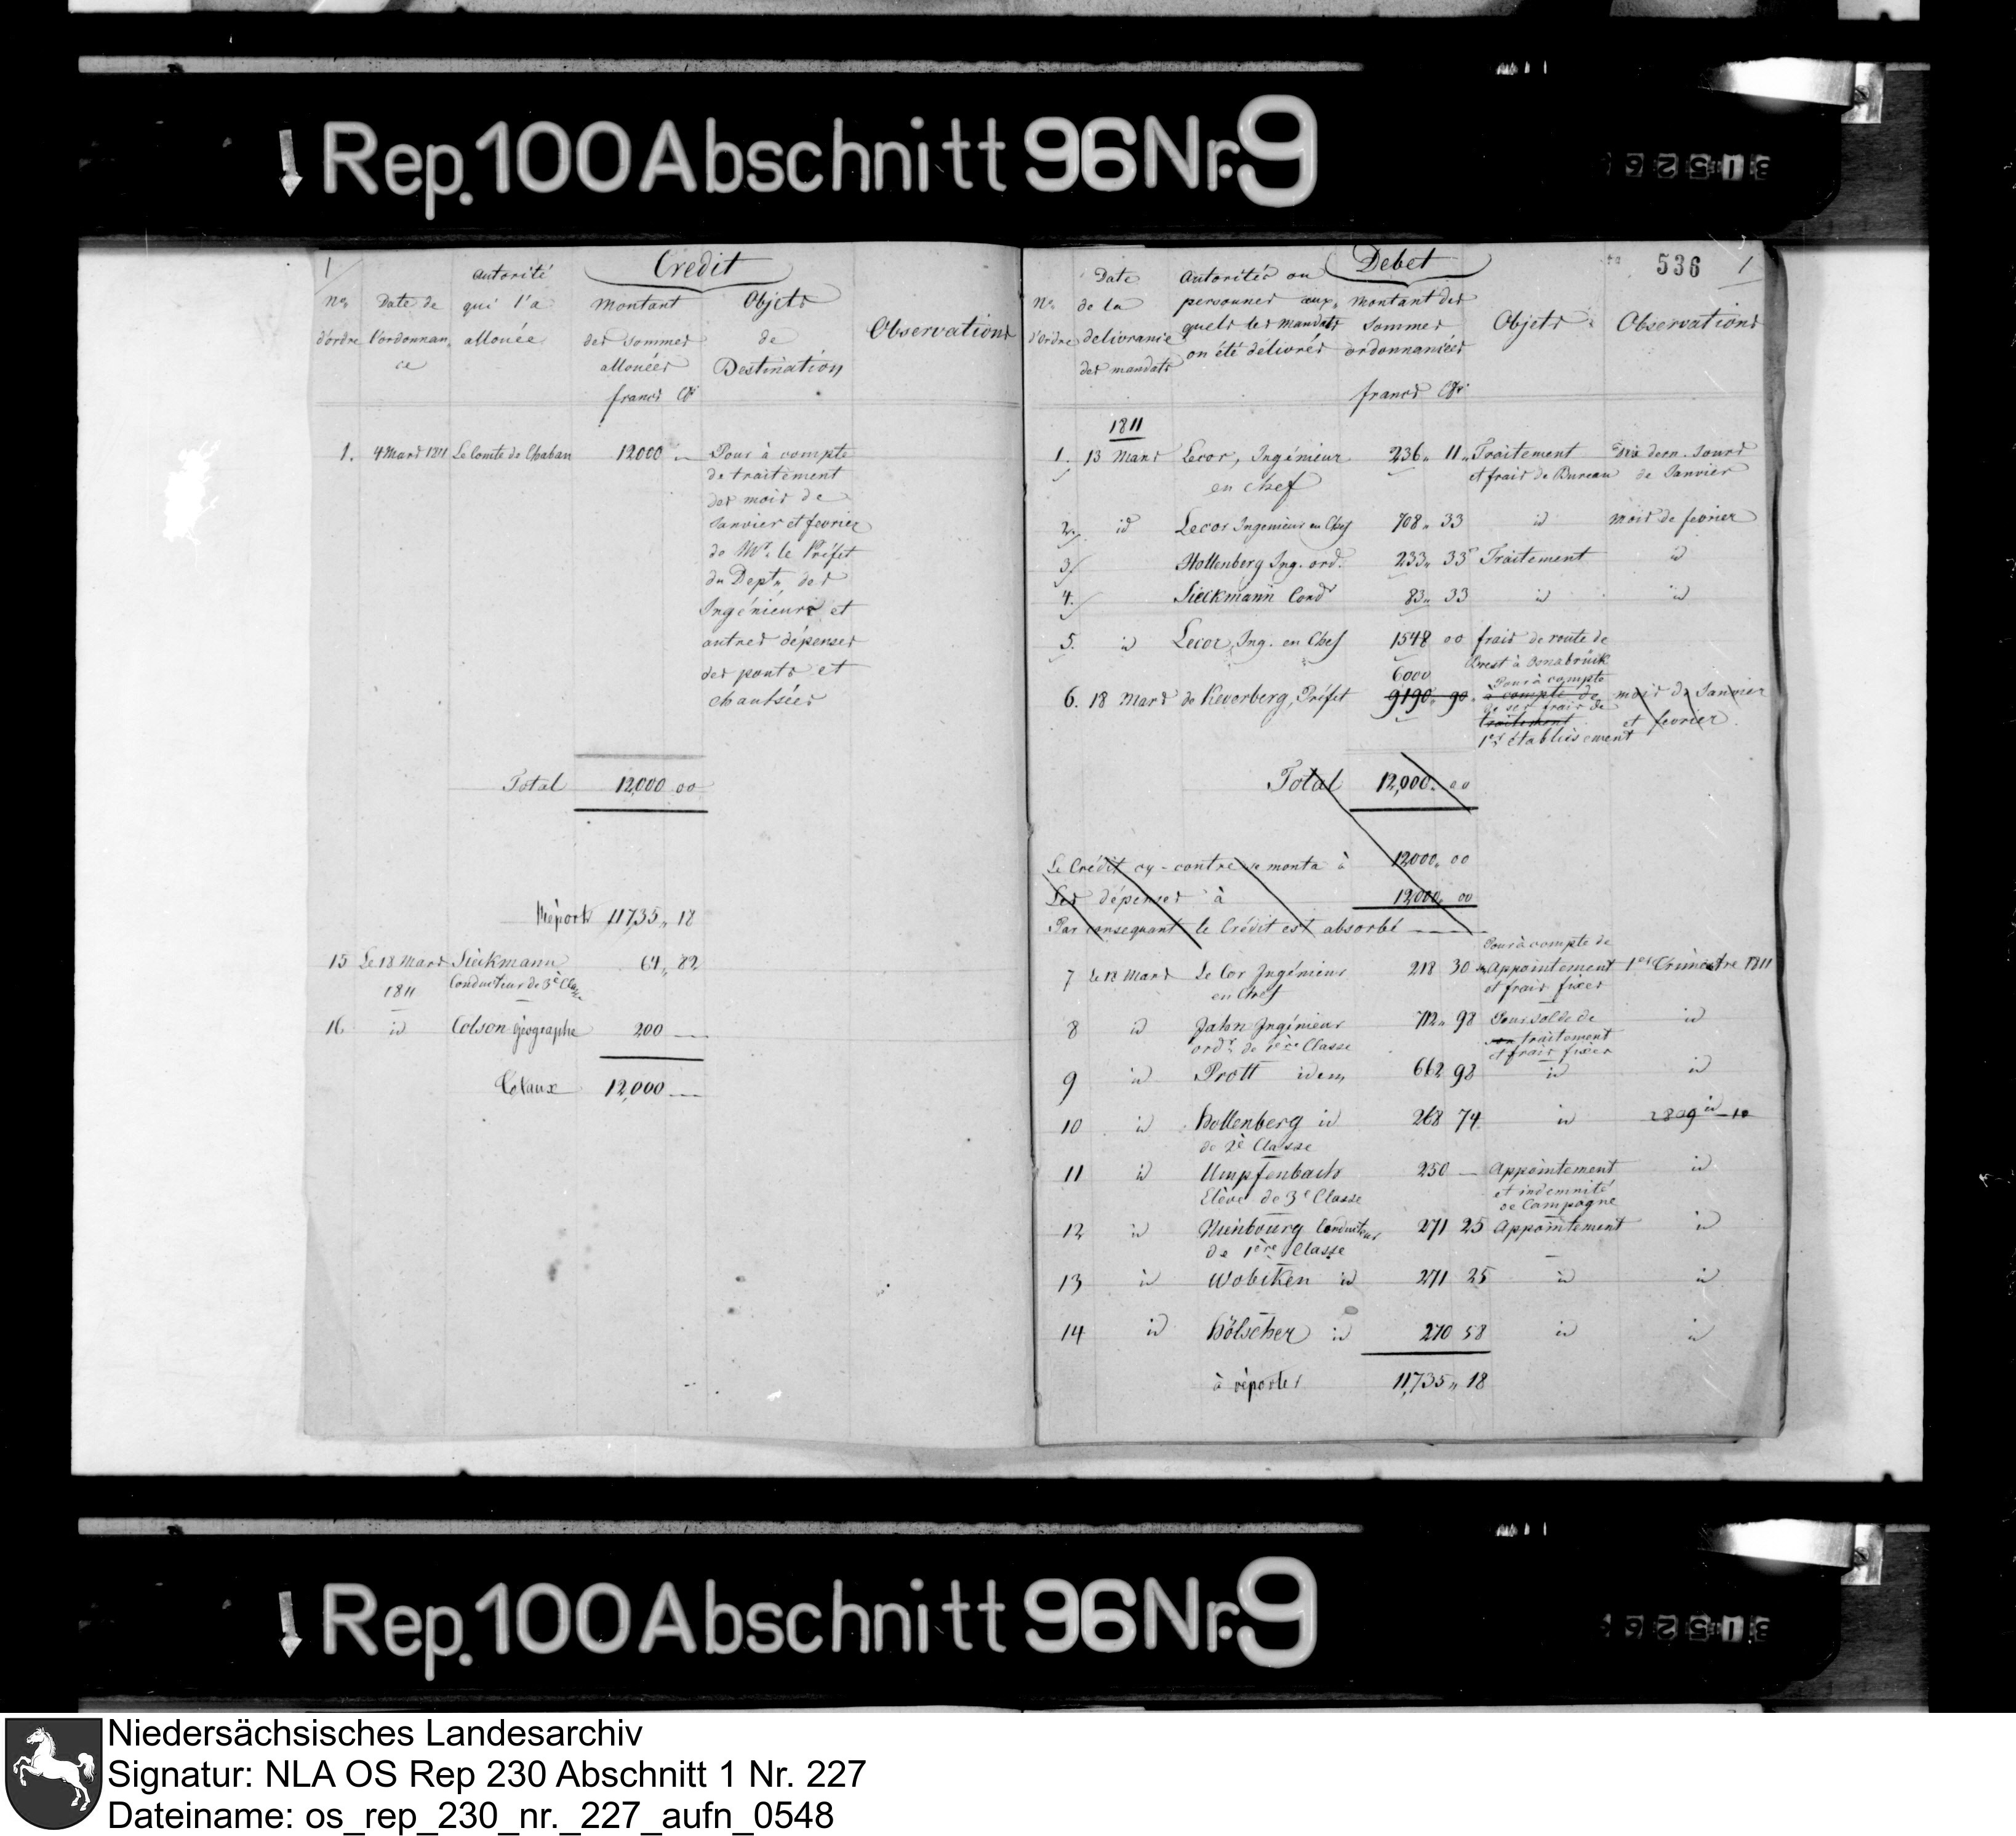 Rep. 100 Abschnitt 96 Nr. 9
31526
1
Credit
Nos d'ordre
Date de l'ordonnance
autorité qui l'a allouée
Montant des sommes allouées
francs Cs
Objets de Destination
Observations
1. 4 Mars 1811 Le Comte de Chaban 12000 — Pour à compte
de traitement
des mois de
Janvier et fevrier
de Mr. le Préfet
du Dept. des
Ingénieurs et
autres dépenses
des ponts et
chaussées
Total 12,000 00
Réport 11,735 „ 18
15 Le 18 Mars Sieckmann 64 „ 82
1811 Conducteur de 3e Classe
16 id Colson géographe 200 —
Totaux 12,000 —
Debet
536 1
Nos d'ordre
Date de la delivrance des mandats
Autorités ou personnes auxquels les mandats on été délivrés
montant des sommes ordonnancées
francs Cs
Objets
Observations
1811
1. 13 Mars Lecor, Ingénieur 236 „ 11 „ Traitement Dix dern. Jours
en chef et frais de Bureau de Janvier
2. id Lecor Ingenieur en Chef 708 „ 33 id Mois de fevrier
3 Hollenberg Ing. ord. 233 „ 33 Traitement id
4. Sieckmann Condr 83 „ 33 id id
5. id Lecor, Ing. en Chef 1548 00 frais de route de
Brest à Osnabrück
6000 Pour à compte
6. 18 Mars de Keverberg, Préfet 9190 „ 90 „ à compte de mois de Janvier
de ses frais de
traitement et fevrier.
1er établissement
Total 12,000 „ 00
Le Crédit cy-contre se monta à 12000 „ 00
Les dépenses à 12,000 „ 00
Par consequant le Crédit est absorbé
Pour à compte de
7 Le 18 Mars Le Cor Ingénieur 218 30 Appointement 1er Trimestre 1811
en Chef et frais fixes
8 id Jahn Ingénieur 712 „ 98 Pour solde de id
ordre de 1ère Classe son traitement
et frais fixes
9 id Prott idem 662 98 id id
10 id Hollenberg id 268 74 id id
de 2e Classe 2809 — 10
11 id Umpfenbach 250 — Appointement id
Elève de 3e Classe et indemnité
de Campagne
12 id Nienbourg Conducteur 271 25 Appointement id
de 1ère Classe
13 id Wobcken id 271 25 id id
14 id Hölscher id 270 58 id id
à réporter 11,735 „ 18
Rep. 100 Abschnitt 96 Nr. 9
31526
Niedersächsisches Landesarchiv
Signatur: NLA OS Rep 230 Abschnitt 1 Nr. 227
Dateiname: os_rep_230_nr._227_aufn_0548